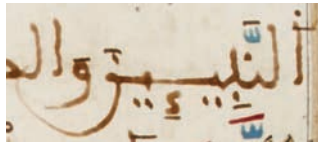 اَلنَّبِيِـۧنَ وَال